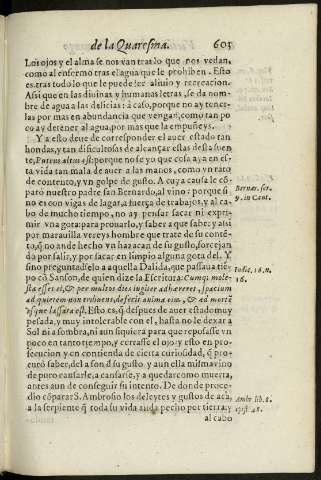 de la Quaresma. 605
Los ojos y el alma se nos van tras lo que nos vedan,
como al enfermo tras el agua que le prohiben. Esto
es, tras todo lo que puede ser alivio y recreacion.
Assi que en las diuinas y humanas letras, se da nom-
bre de agua a las delicias: à caso, porque no ay tener-
las por mas en abundancia que vengan, como tan po
co ay detener al agua, por mas que la empuñeys.
Y a esto deue de corresponder el auer estado tan
hondas, y tan dificultosas de alcançar estas desta fuen
te, Puteus altus est: porque no se yo que cosa aya en es-
ta vida tan mala de auer a las manos, como vn rato
de contento, y vn golpe de gusto. A cuya causa le cô
parò nuestro padre san Bernardo, al vino: porque si-
no es con vigas de lagar, a fuerça de trabajos, y al ca-
bo de mucho tiempo, no ay pensar sacar ni expri-
mir vna gota: para prouarlo, y saber a que sabe: y assi
por marauilla vereys hombre que trate de su conté-
to, q̃ no ande hecho vn hazacan de su gusto, forcejan
do por salir, y por sacar en limpio alguna gota del. Y
sino preguntadselo a aquella Dalida, que passaua tie-
po cõ Sanson, de quien dize la Escritura: Cumq; mole-
sta esset ei, & per multos dies iugiter adhæreret, spacium
ad quietem non tribuens, defecit anima eius, & ad mortē
vsque lassata est. Esto es, q̃ despues de auer estado muy
pesada, y muy intolerable con el, hasta no le dexar a
Sol ni a sombra, ni aun siquiera para que reposasse vn
poco en tanto tiempo, y cerrasse el ojo: y esto en pro-
secucion y en contienda de cierta curiosidad, q̃ pro-
curò saber, del a son d su gusto, y aun ella misma vino
de puro cansarle, a cansarse, y a quedar como muerta,
antes aun de conseguir su intento. De donde proce-
dio cõparar S. Ambrosio los deleytes y gustos de acà,
a la serpiente q̃ toda su vida anda pecho por tierra, y
al cabo
Bernar. ser.
9. in Cant.
Iudic. 16. n.
16.
Ambr. lib. 2.
epist.